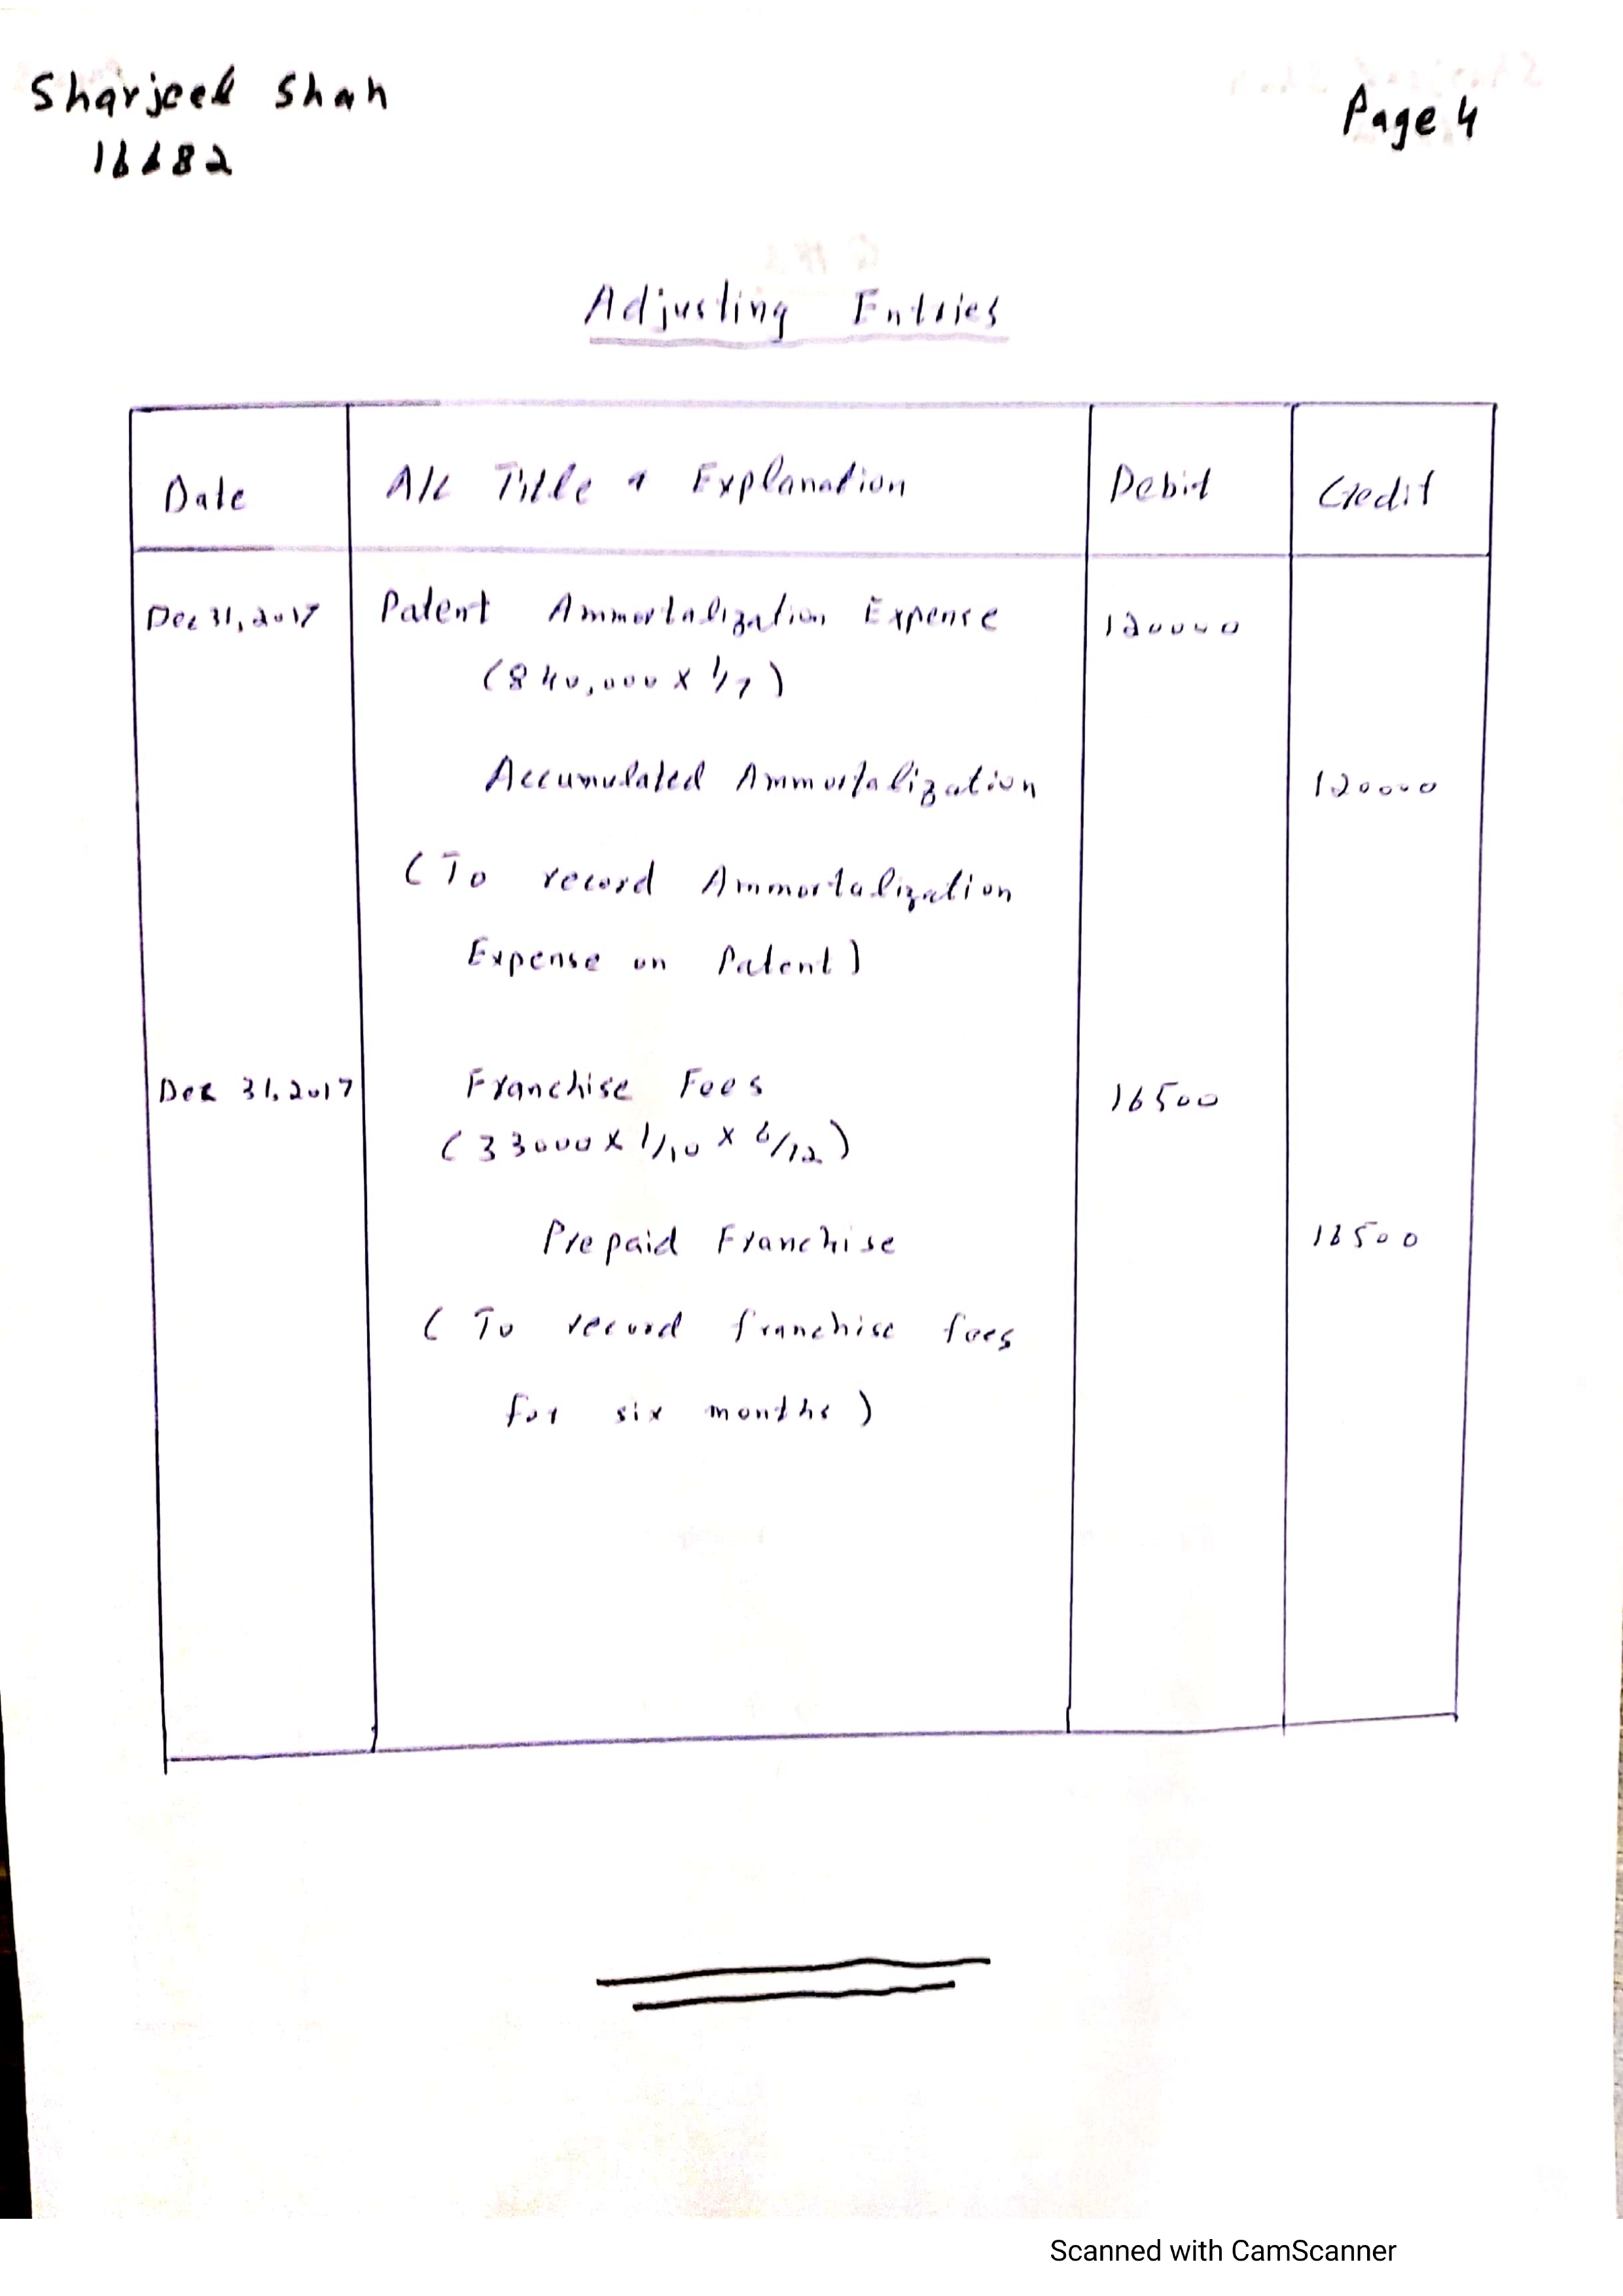 Sharjeel Shah
Page 4
16682
Adjusting Entries
Date A/c Title & Explanation Debit Credit
Dec 31, 2017 Patent Ammortalization Expense 120000
(840,000 x 1/7)
Accumulated Ammortalization 120000
(To record Ammortalization
Expense on Patent)
Dec 31, 2017 Franchise Fees 16500
(33000 x 1/10 x 6/12)
Prepaid Franchise 16500
(To record franchise fees
for six months)
Scanned with CamScanner